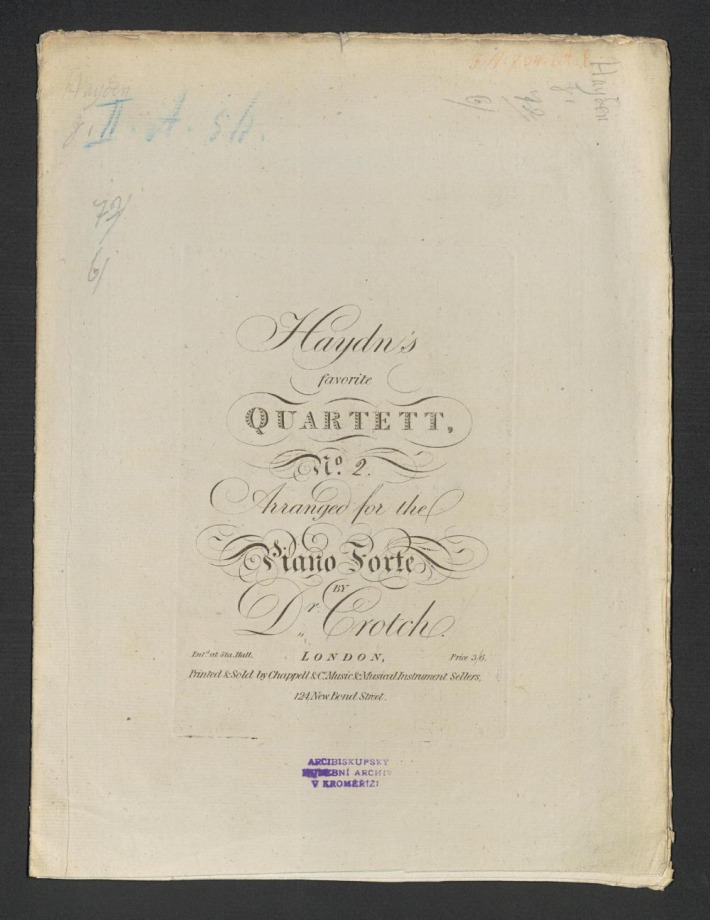 Hayden
Hayden
II. A. 
73/
6/
73/
6/
Haydn's
favorite
QUARTETT,
No. 2.
Arranged for the
Piano Forte
BY
Dr. Crotch.
Ent.d at Sta. Hall. LONDON, Price 3/6.
Printed & Sold by Chappell & Co. Music & Musical Instrument Sellers,
124, New Bond Street.
ARCIBISKUPSKÝ
HUDEBNÍ ARCHIV
V KROMĚŘÍŽI